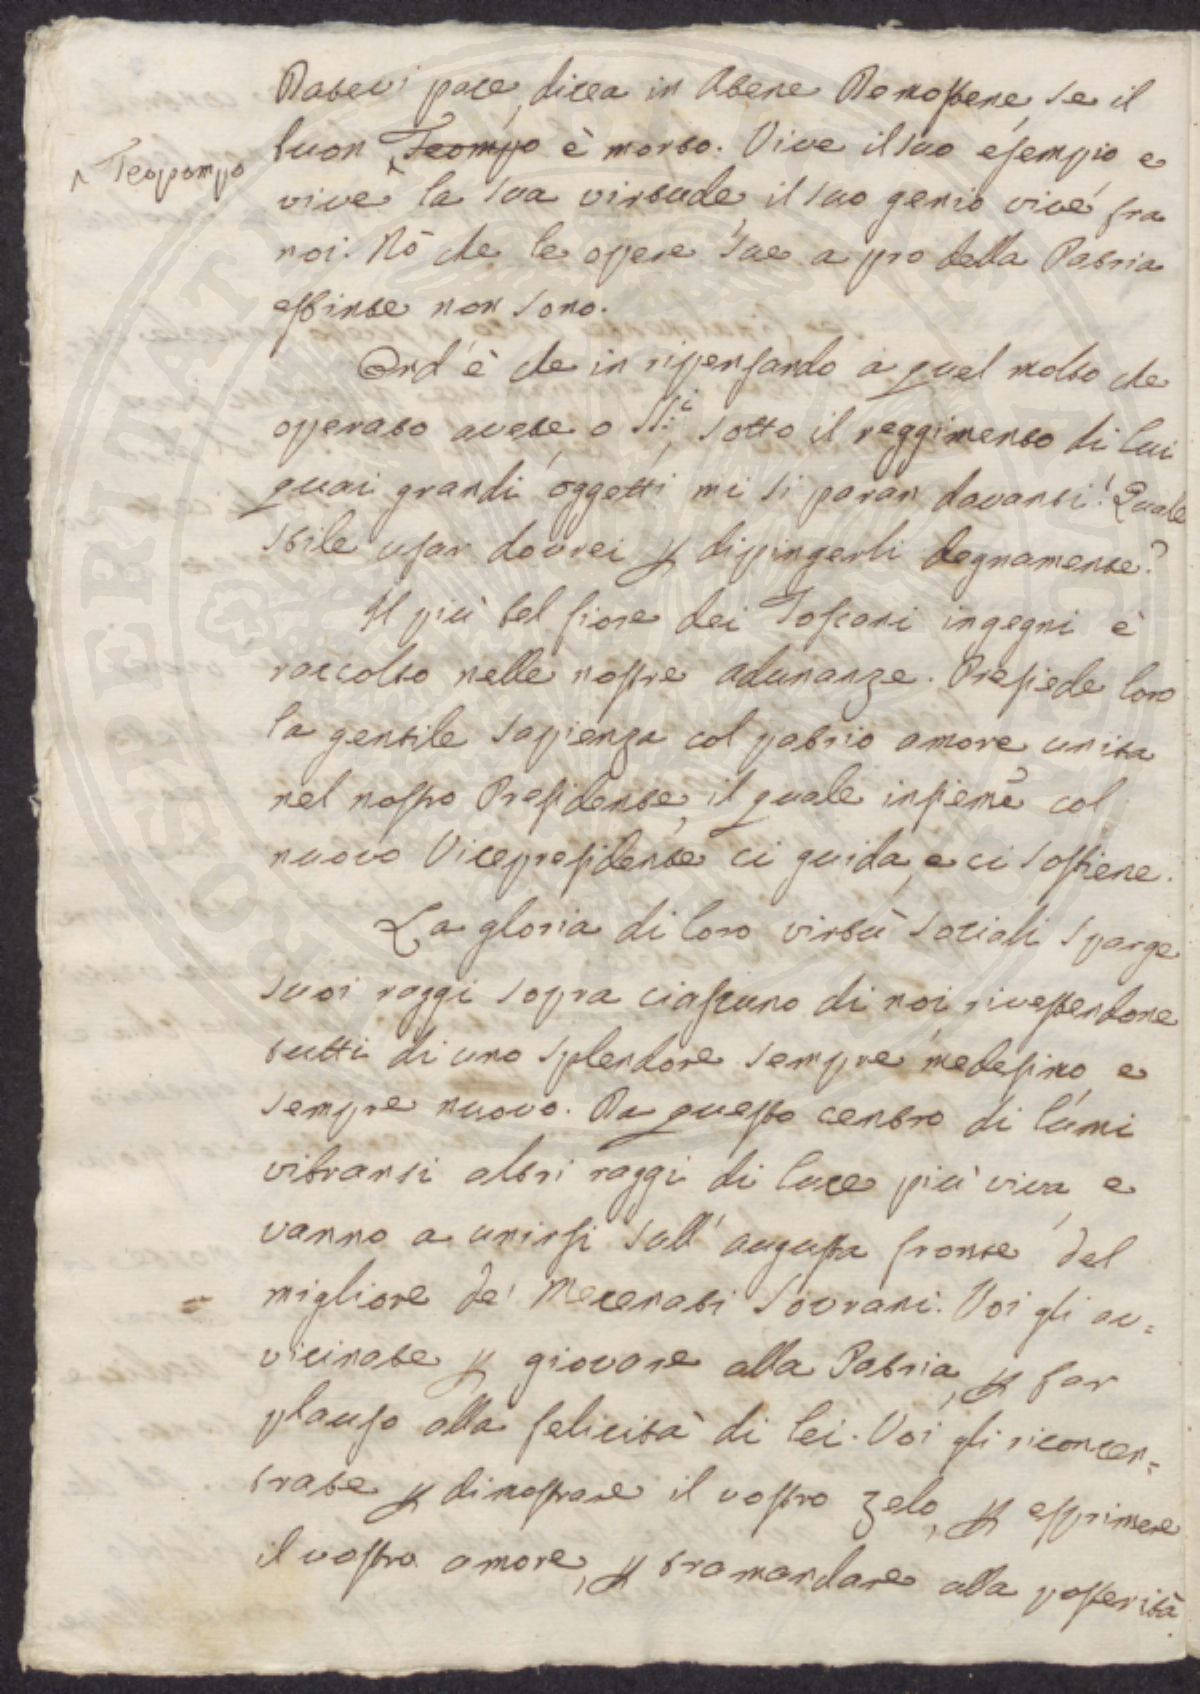 Datevi pace, dicea in Atene Demostene, se il
^ Teopompo
buon ^ Teompo è morto. Vive il suo esempio e
vive la sua virtude, il suo genio vive fra
noi. Nò che le opere sue a pro della Patria
estinte non sono.
Ond'è che in ripensando a quel molto che
operato avete, o SS.i, sotto il reggimento di lui
quai grandi oggetti mi si paran davanti! Quale
stile usar dovrei p dipingerli degnamente?
Il più bel fiore dei Toscani ingegni è
raccolto nelle nostre adunanze. Presiede loro
la gentile sapienza col patrio amore unita
nel nostro Presidente, il quale insieme col
nuovo Vicepresidente ci guida, e ci sostiene.
La gloria di loro virtù sociali sparge
suoi raggi sopra ciascuno di noi, rivestendone
tutti di uno splendore sempre medesimo, e
sempre nuovo. Da questo centro di lumi
vibransi altri raggi di luce più viva, e
vanno a unirsi sull'augusta fronte del
migliore de' Mecenati Sovrani. Voi gli av=
vicinate p giovare alla Patria, p far
plauso alla felicità di lei. Voi gli riconcen=
trate p dimostrare il vostro zelo, p esprimere
il vostro amore, p tramandare alla posterità
PROSPERITATI